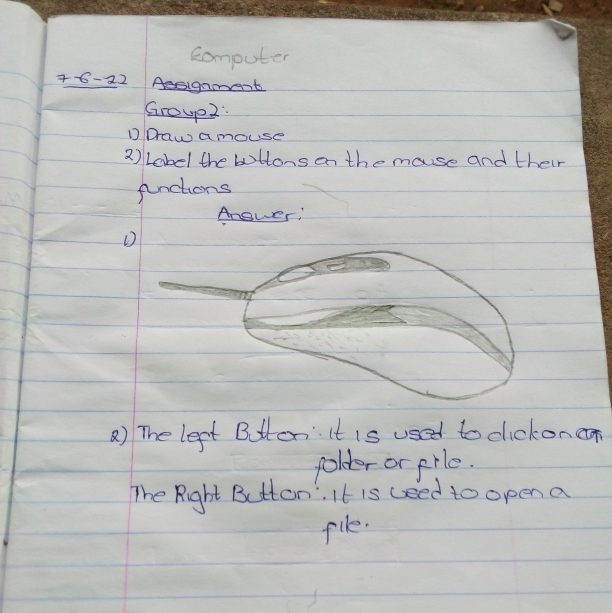 Computer
7-6-22 Assignment
Group 2:
1) Draw a mouse
2) Label the buttons on the mouse and their
functions
Answer:
1)
2) The left Button: it is used to click on a
folder or file.
The Right Button: It is used to open a
file.